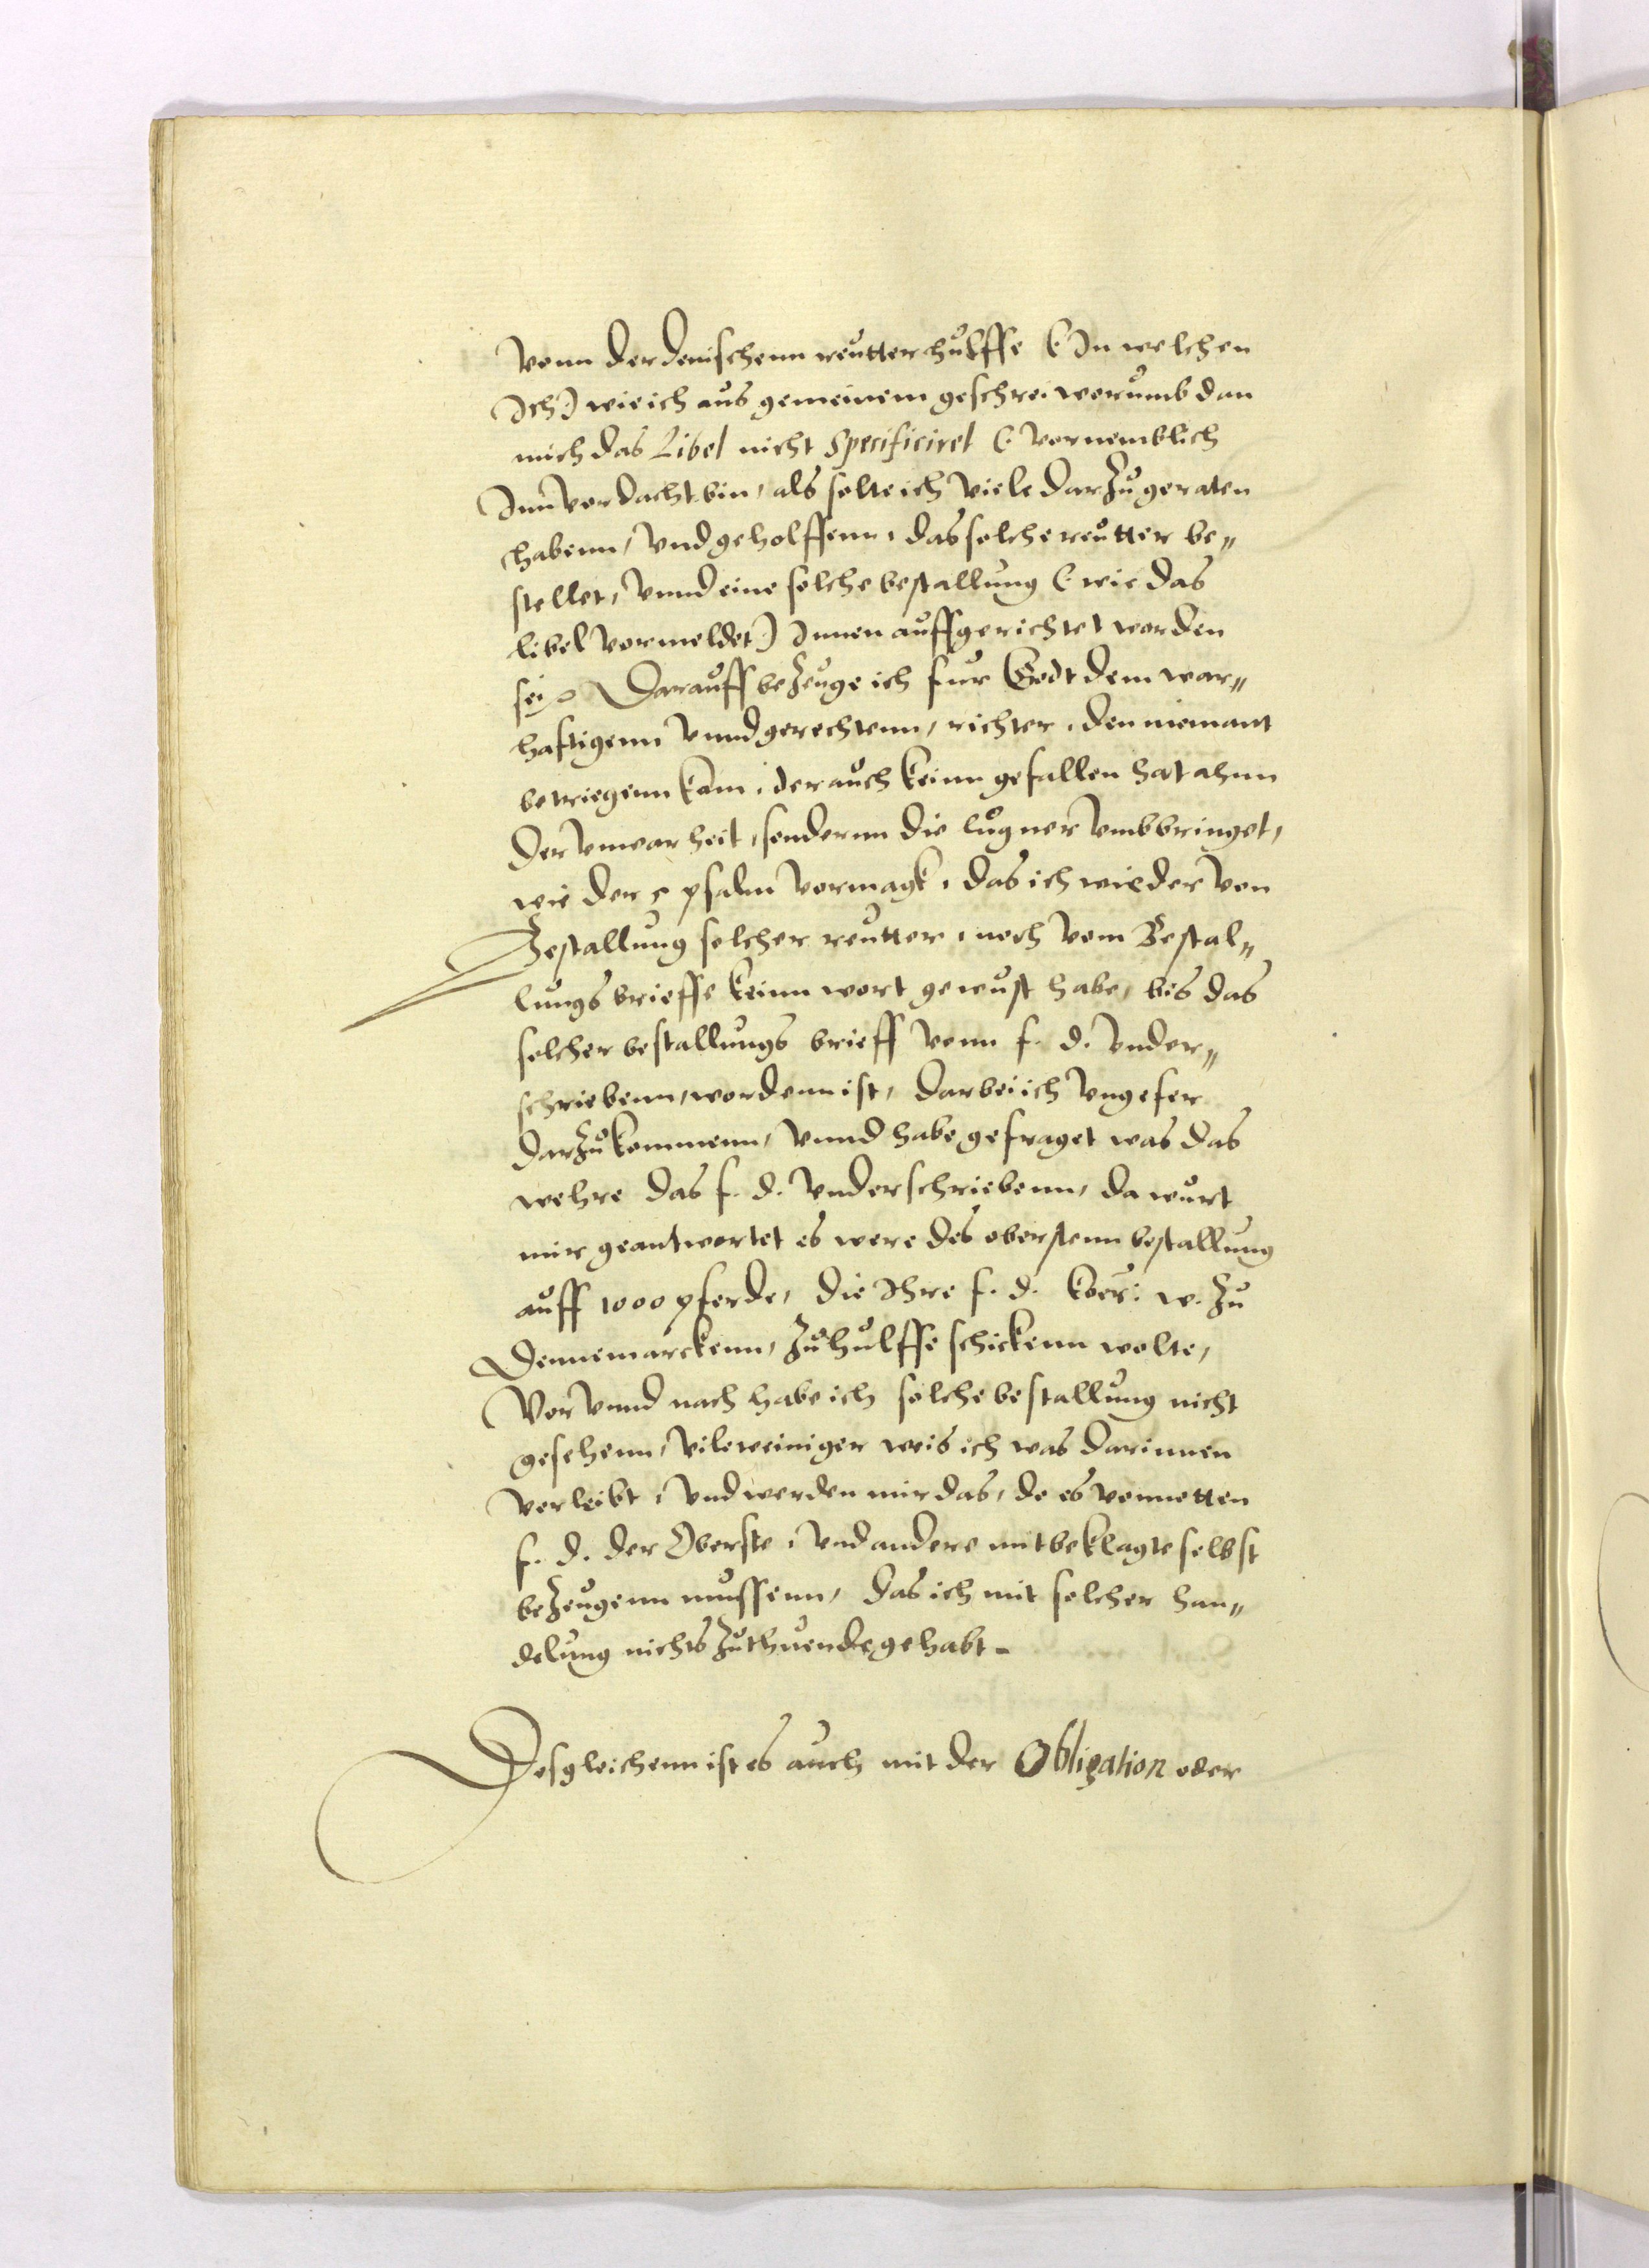 Vonn der denischenn reutter hulffe (: In welchen
Ich :) wie ich aus gemeinem geschrei worumb dan
mich das Libel nicht Specificiret (: vornemblich
Inn vordacht bin, als solte ich viele darzu geraten
habenn, vnd geholffenn, das solche reutter be„
stellet, vnnd eine solche bestallung (: wie das
libel vormeldet :) Innen auffgerichtet worden
sei, Darauff bezeuge ich fur Godt dem war„
haftigenn vnnd gerechtenn, richter, den niemant
betriegenn kann, der auch keinn gefallen hat ahnn
der vnwarheit, sondernn die lugner vmbbringet,
wie der 5 psalm vormagk, das ich wieder von
Bestallung solcher reutter, noch vom Bestal„
lungs brieffe keinn wort gewust habe, bis das
solcher bestallungs brieff vonn f. d. vnder„
schriebenn, wordenn ist, darbei ich vngefer
darzu kommenn, vnnd habe gefraget was das
wehre das f. d. vnderschriebenn, da wurt
mir geantwortet es were des oberstenn bestallung
auff 1000 pferde, die Ihre f. d. koer: w. zu
Dennemarckenn, zu hulffe schickenn wolte,
Vor vnnd nach habe ich solche bestallung nicht
gesehenn, vileweiniger weis ich was darinnen
verleibt, vnd werden mir das, do es vonnetten
f. d. der Oberste, vnd andere mitbeklagte selbst
bezeugenn mussenn, das ich mit solcher han„
delung nichts zuthuende gehabt -
Desgleichenn ist es auch mit der Obligation oder